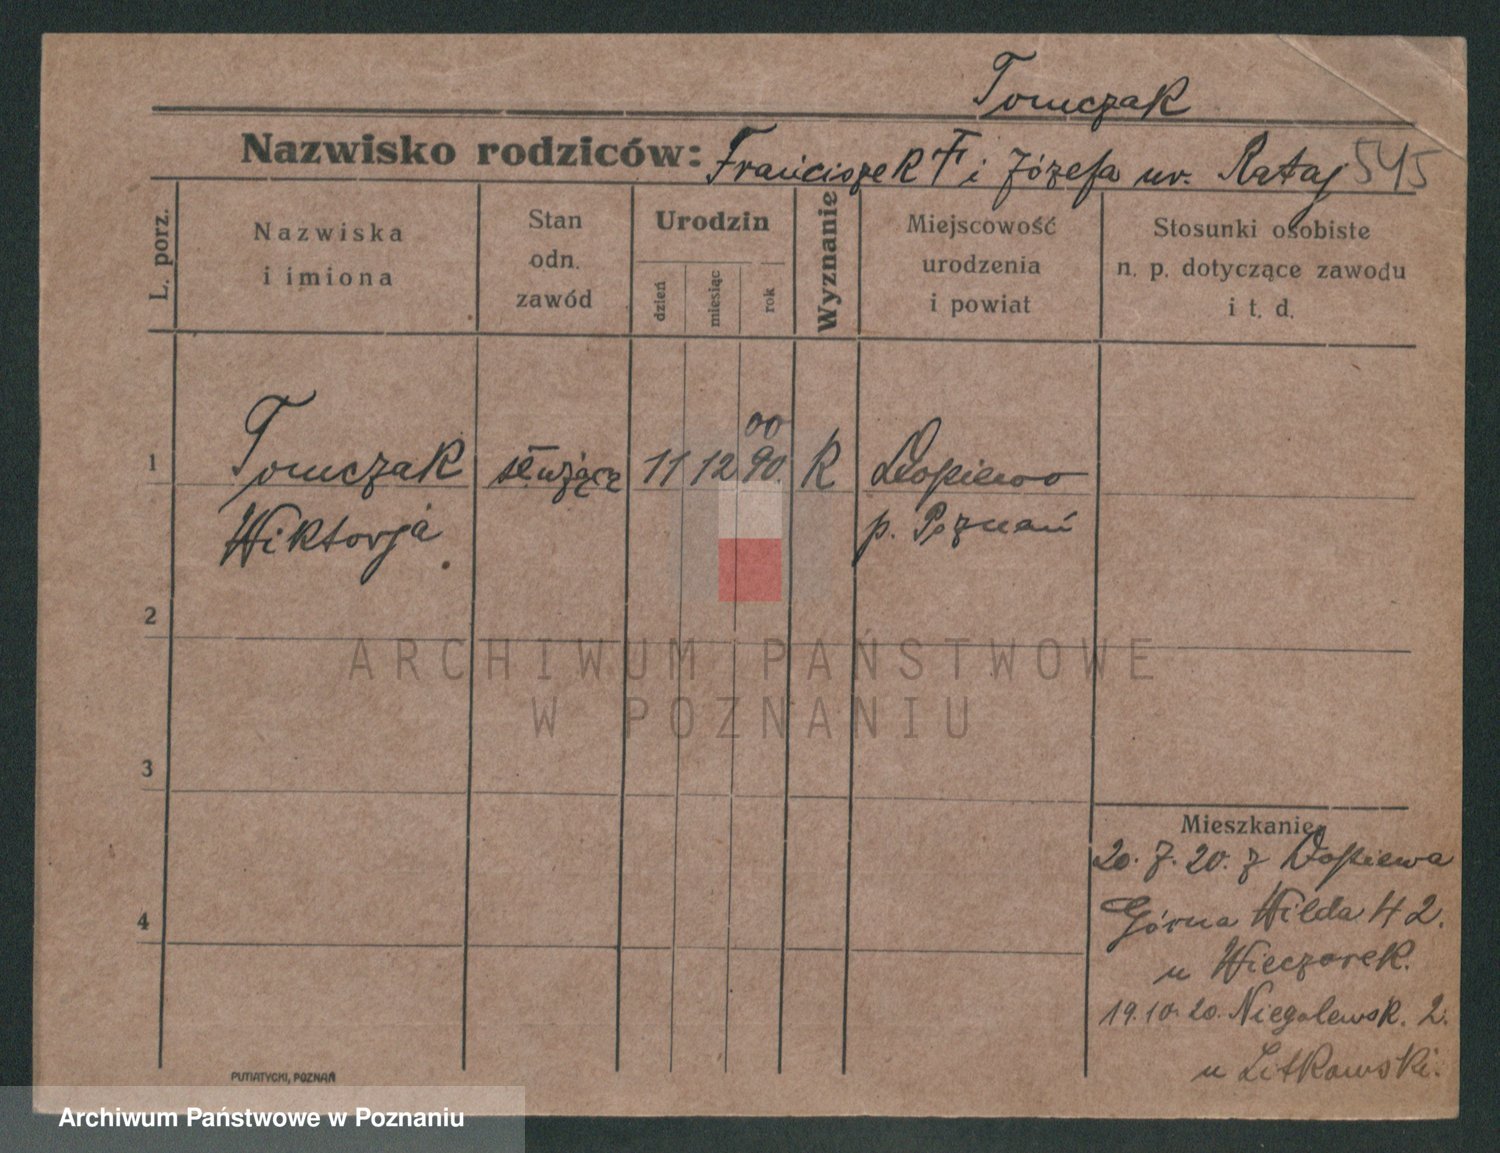 Tomczak
Nazwisko rodziców: Franciszek † i Józefa ur. Rataj 545
L. porz.
Nazwiska
i imiona
Stan
odn.
zawód
Urodzin
dzień
miesiąc
rok
Wyznanie
Miejscowość
urodzenia
i powiat
Stosunki osobiste
n. p. dotyczące zawodu
i t. d.
00
1 Tomczak służąca 11 12 90. K Dopiewo
Wiktorja. p. Poznań
2
ARCHIWUM PAŃSTWOWE
W POZNANIU
3
Mieszkanie
20. 7. 20. z Dopiewa
4 Górna Wilda 42.
u Wieczorek.
19.10.20. Niegolewsk. 2.
u Litkowski.
PUTIATYCKI, POZNAŃ
Archiwum Państwowe w Poznaniu